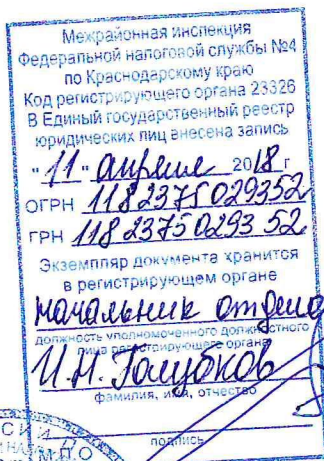 Межрайонная инспекция
Федеральной налоговой службы №4
по Краснодарскому краю
Код регистрирующего органа 23326
В Единый государственный реестр
юридических лиц внесена запись
"11" апреля 2018 г
ОГРН 1182375029352
ГРН 1182375029352
Экземпляр документа хранится
в регистрирующем органе
начальник отдела
должность уполномоченного должностного
лица регистрирующего органа
И.Н. Голубков
фамилия, имя, отчество
подпись